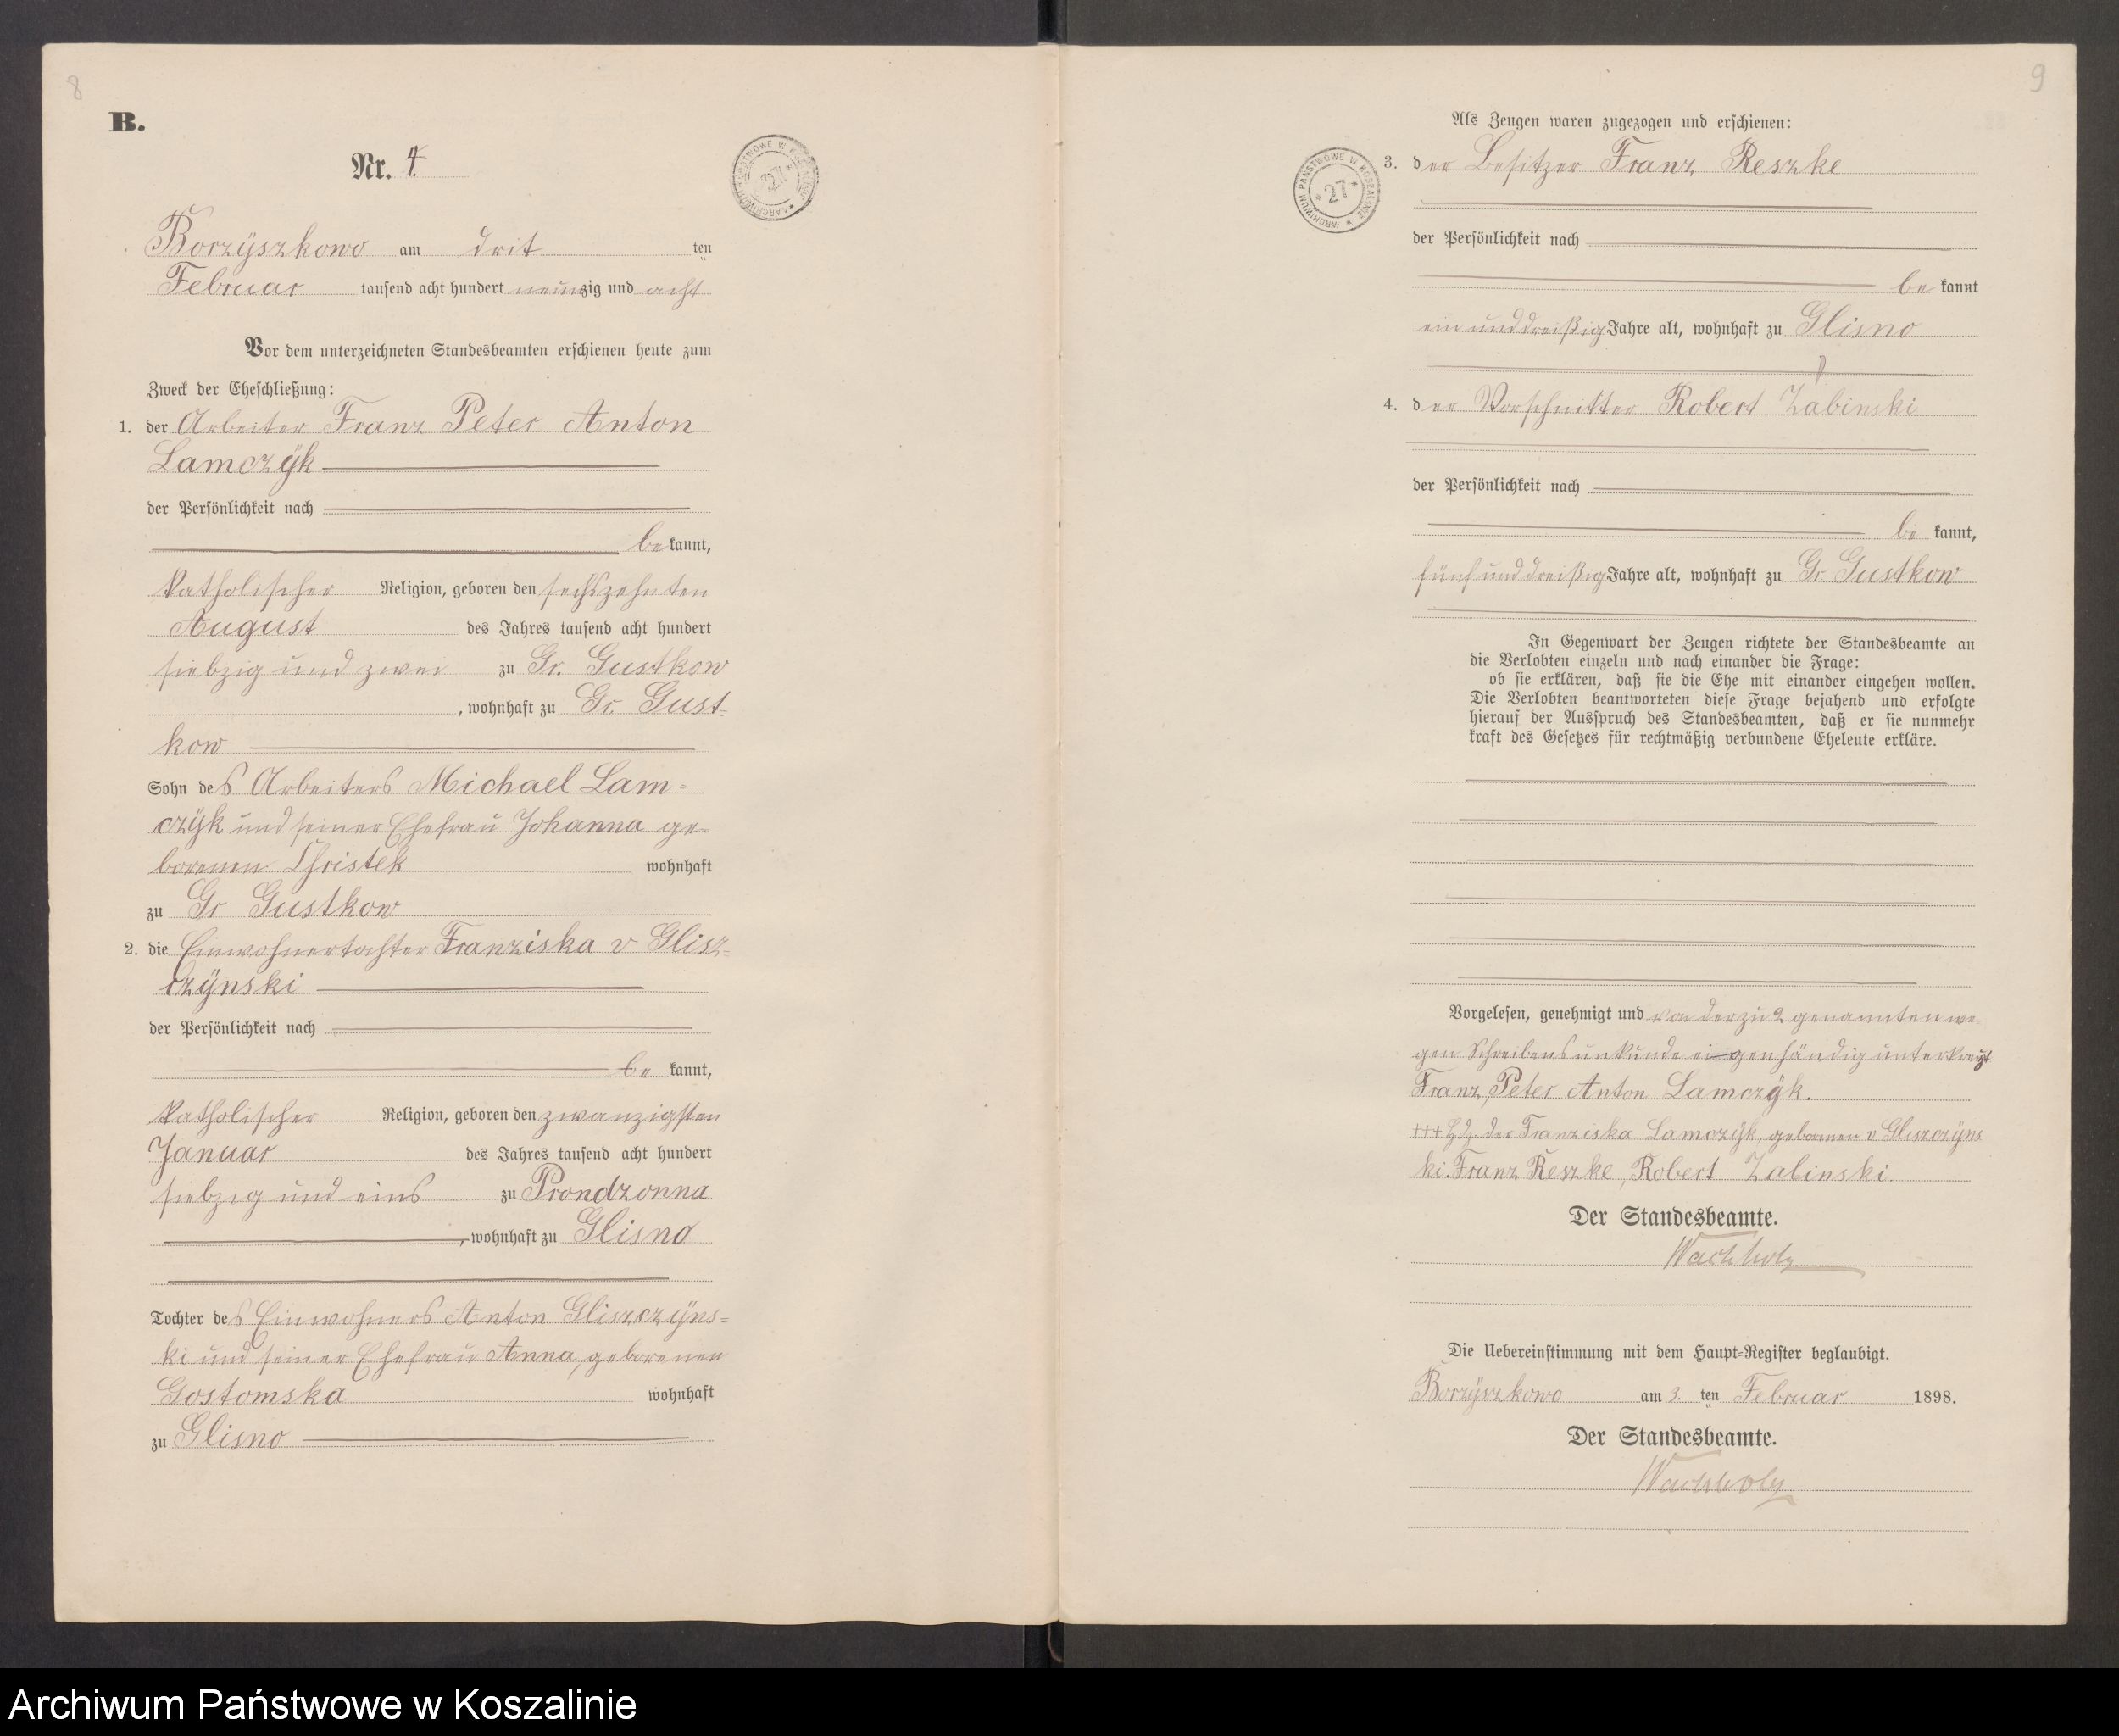 8
B.
Nr. 4.
Borzÿszkowo am drit ten
Februar tausend acht hundert neunzig und acht
Vor dem unterzeichneten Standesbeamten erschienen heute zum
Zweck der Eheschließung:
1. der Arbeiter Franz Peter Anton
Lamczÿk
der Persönlichkeit nach
be kannt,
katholischer Religion, geboren den sechszehnten
August des Jahres tausend acht hundert
siebzig und zwei zu Gr. Gustkow
, wohnhaft zu Gr. Gust-
kow
Sohn des Arbeiters Michael Lam-
czÿk und seiner Ehefrau Johanna ge-
borenen Christek wohnhaft
zu Gr Gustkow
2. die Einwohnertochter Franziska v Glisz-
czÿnski
der Persönlichkeit nach
be kannt,
katholischer Religion, geboren den zwanzigsten
Januar des Jahres tausend acht hundert
siebzig und eins zu Prondzonna
, wohnhaft zu Glisno
Tochter des Einwohners Anton Gliszczÿns-
ki und seiner Ehefrau Anna, geborenen
Gostomska wohnhaft
zu Glisno
ARCHIWUM PAŃSTWOWE W KOSZALINIE * 27 *
9
Als Zeugen waren zugezogen und erschienen:
3. der Besitzer Franz Reszke
der Persönlichkeit nach
be kannt
ein und dreißig Jahre alt, wohnhaft zu Glisno
4. der Vorschnitter Robert Zabinski
der Persönlichkeit nach
be kannt,
fünf und dreißig Jahre alt, wohnhaft zu Gr. Gustkow
In Gegenwart der Zeugen richtete der Standesbeamte an
die Verlobten einzeln und nach einander die Frage:
ob sie erklären, daß sie die Ehe mit einander eingehen wollen.
Die Verlobten beantworteten diese Frage bejahend und erfolgte
hierauf der Ausspruch des Standesbeamten, daß er sie nunmehr
kraft des Gesetzes für rechtmäßig verbundene Eheleute erkläre.
Vorgelesen, genehmigt und von der zu 2 genannten we-
gen Schreibensunkunde eigenhändig unterkreuzt
Franz Peter Anton Lamczÿk.
+++ Hdz. der Franziska Lamczÿk, geborenen v Gliszczÿns
ki. Franz Reszke, Robert Zabinski.
Der Standesbeamte.
Wachholz
Die Uebereinstimmung mit dem Haupt-Register beglaubigt.
Borzÿszkowo am 3. ten Februar 1898.
Der Standesbeamte.
Wachholz
ARCHIWUM PAŃSTWOWE W KOSZALINIE * 27 *
Archiwum Państwowe w Koszalinie